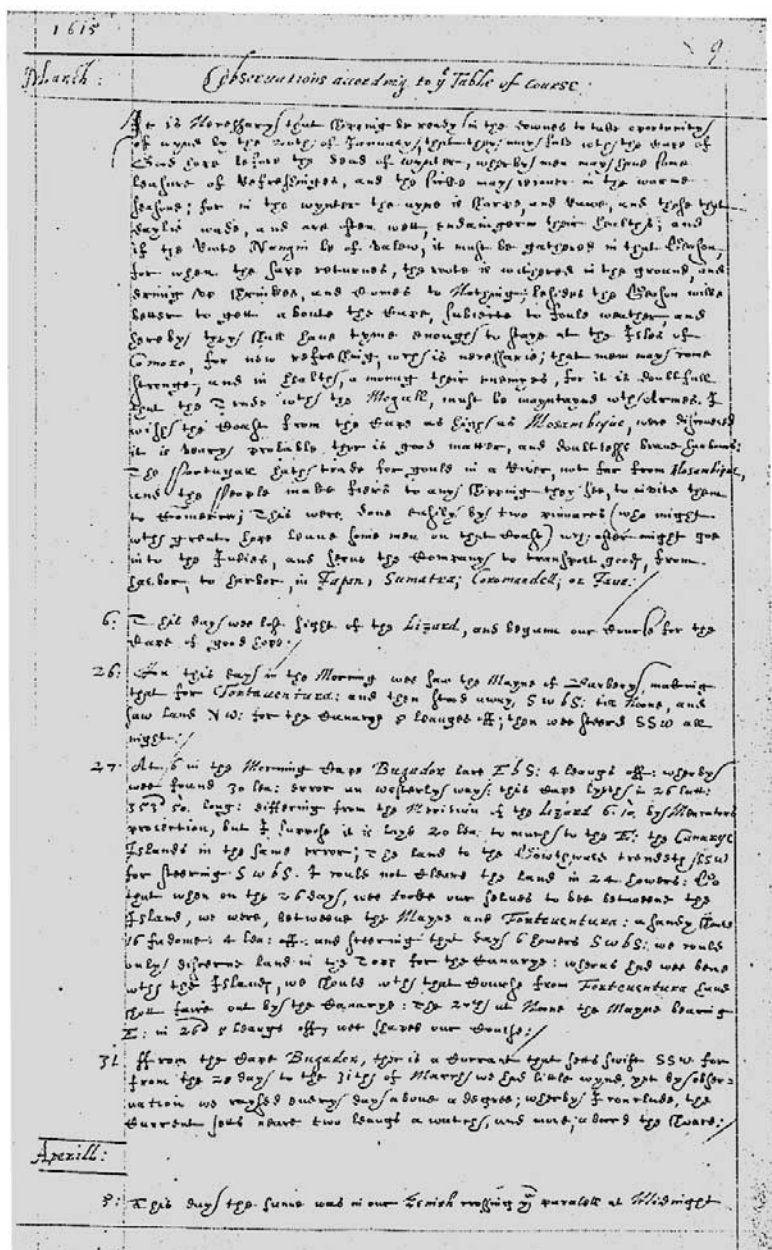 1615
9
March:
Observations according to yͤ Table of Course:
It is Necessarye that shipping be ready in the downes to take oportunitye
of wynd by the of January, that they may with the of
God before the dead of wynter, wherby men may have some
leasure of Refreshinge, and the sicke may recover in the warme
seasone; for in the wynter the ayre is sharpe, and rawe, and those that
daylie wade, and are often wett, endainger their healths; and
if the roote Nangin be of valew, it must be gathered in that season,
for when the returnes, the roote is withered in the ground, and
drying up shrinkes, and comes to Nothing; besides the season will
better to gett aboute the Cape, subiecte to foule weather, and
hereby they shall have tyme enough to staye at the Isles of
Comoro, for new refreshing, wch is necessarie; that men may come
stronge, and in health, amoung their enemyes, for it is doubtfull
that the Trade with the Mogull, must be mayntaynd with Armes. I
wish the Coast from the Cape as high as Mosambique, were discovered
it is verye probable ther is good matter, and doubtlesse brave harbours:
The Portugall hath trade for gould in a River, not far from Mosambique,
and the People make fiers to any shipping they see, to invite them
to Comerce; This were done easily by two pinnaces (who might
with greate hope leave some men on that Coast) wch after might goe
into the Indies, and serve the Company to transport goods, from
harbor, to harbor, in Japan, Sumatra, Coromandell, or Java:
6: This day wee lost sight of the Lizard, and began our Course for the
Cape of good hope:
26: On this day in the Morning wee saw the Mayne of Barbery, making
that for Forteuentura: and then stood away, SWbS: till Noone, and
saw land NW: for the Canarye 8 leauges off; then wee steerd SSW all
night:
27 At 6 in the Morning Cape Bugador bare EbS: 4 leaugs off: wherby
wee found 30 lea: error in westerly way; this Cape lyeth in 26 latt:
353d 50. long: differing from the Meridian of the Lizard 6:10. by Mercators
proiection, but I suppose it is layd 20 lea to much to the E: the Canarye
Islands in the same error; The land to the Southward trendeth SSW
for steering SWbS. I could not cleare the land in 24 howers: So
that when on the 26 day, wee tooke our selues to bee betweene the
Island, we were, betweene the Mayne and Forteuentura: a sandy
16 fadome: 4 lea: off: and steering that day 6 howers SWbS: we could
only discerne land in the Topp for the Canarye: wheras had wee bene
with the Islands, we should with that Course from Forteuentura have
shott faire out by the Canarye: The 27th at Noone the Mayne bearing
E: in 26d 8 leaugs off, wee shaped our Course:
31 From the Cape Bugador, ther is a Currant that setts swift SSW for
from the 28 day to the 31th of March we had little wynd, yet by obser=
uation we raysed every day aboue a degree; wherby I conclude, the
Current setts neare two leaugs a watch, and more, aboord the shoare:
Aperill:
This day the sunne was in our Zenith crossing yͬ paralell at Midnight